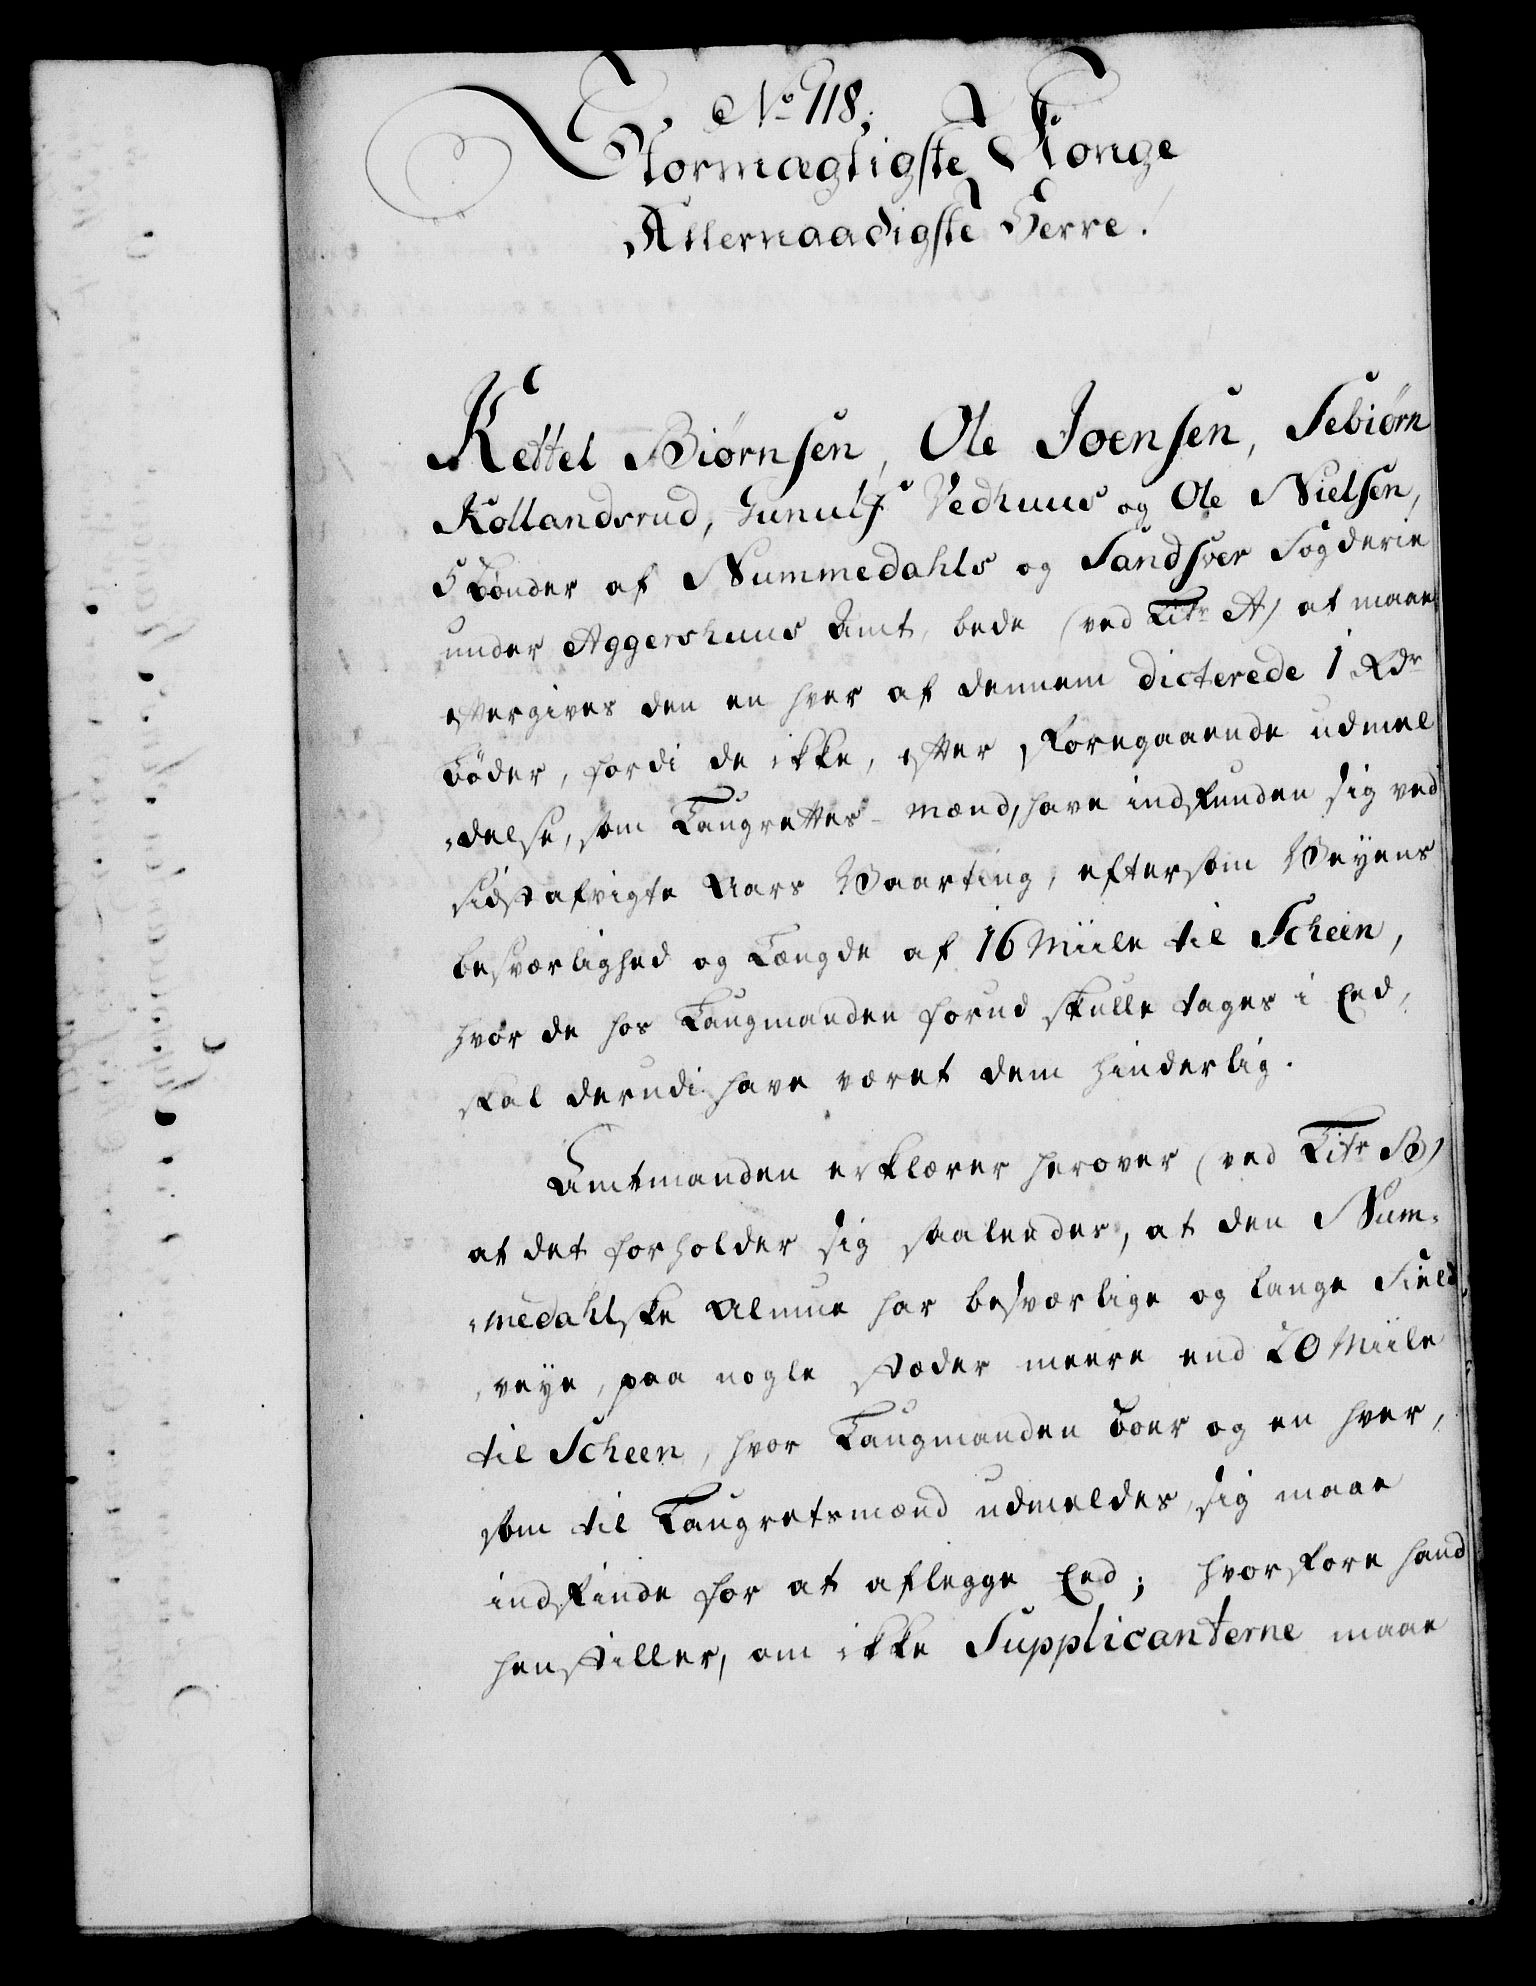 No 118.
Stormægtigste Konge
Allernaadigste Herre.
Kettel Biørnsen, Ole Joensen, Sebiørn
Kollandsrud, Gunulf Vedhuus og Ole Nielsen,
5 Bønder af Nummedahls og Sandsver Fogderie
under Aggershuus Amt, bede (ved Litr A) at maae
eftergives den en hver af dennem dicterede 1 Rdr
Bøder, fordi de ikke, efter foregaaende udmel
-delse, som Laugrettes-Mænd, have indfunden sig ved
sidstafvigte Aars Vaarting, eftersom Veyens
besværlighed og Længde af 16 Miile til Scheen,
hvor de hos Laugmanden forud skulle tages i Eed,
skal derudi have været dem hinderlig.
Amtmanden erklærer herover (ved Litr B)
at det forholder sig saaledes, at den Num-
-medahlske Almue har besværlige og lange Field
-veye, paa nogle Stæder meere end 20 Miile
til Scheen, hvor Laugmanden boer og en hver,
som til Laugretsmænd udmeldes, sig maae
indfinde for at aflegge Eed; hvorfore hand
henstiller, om ikke Supplicanterne maae